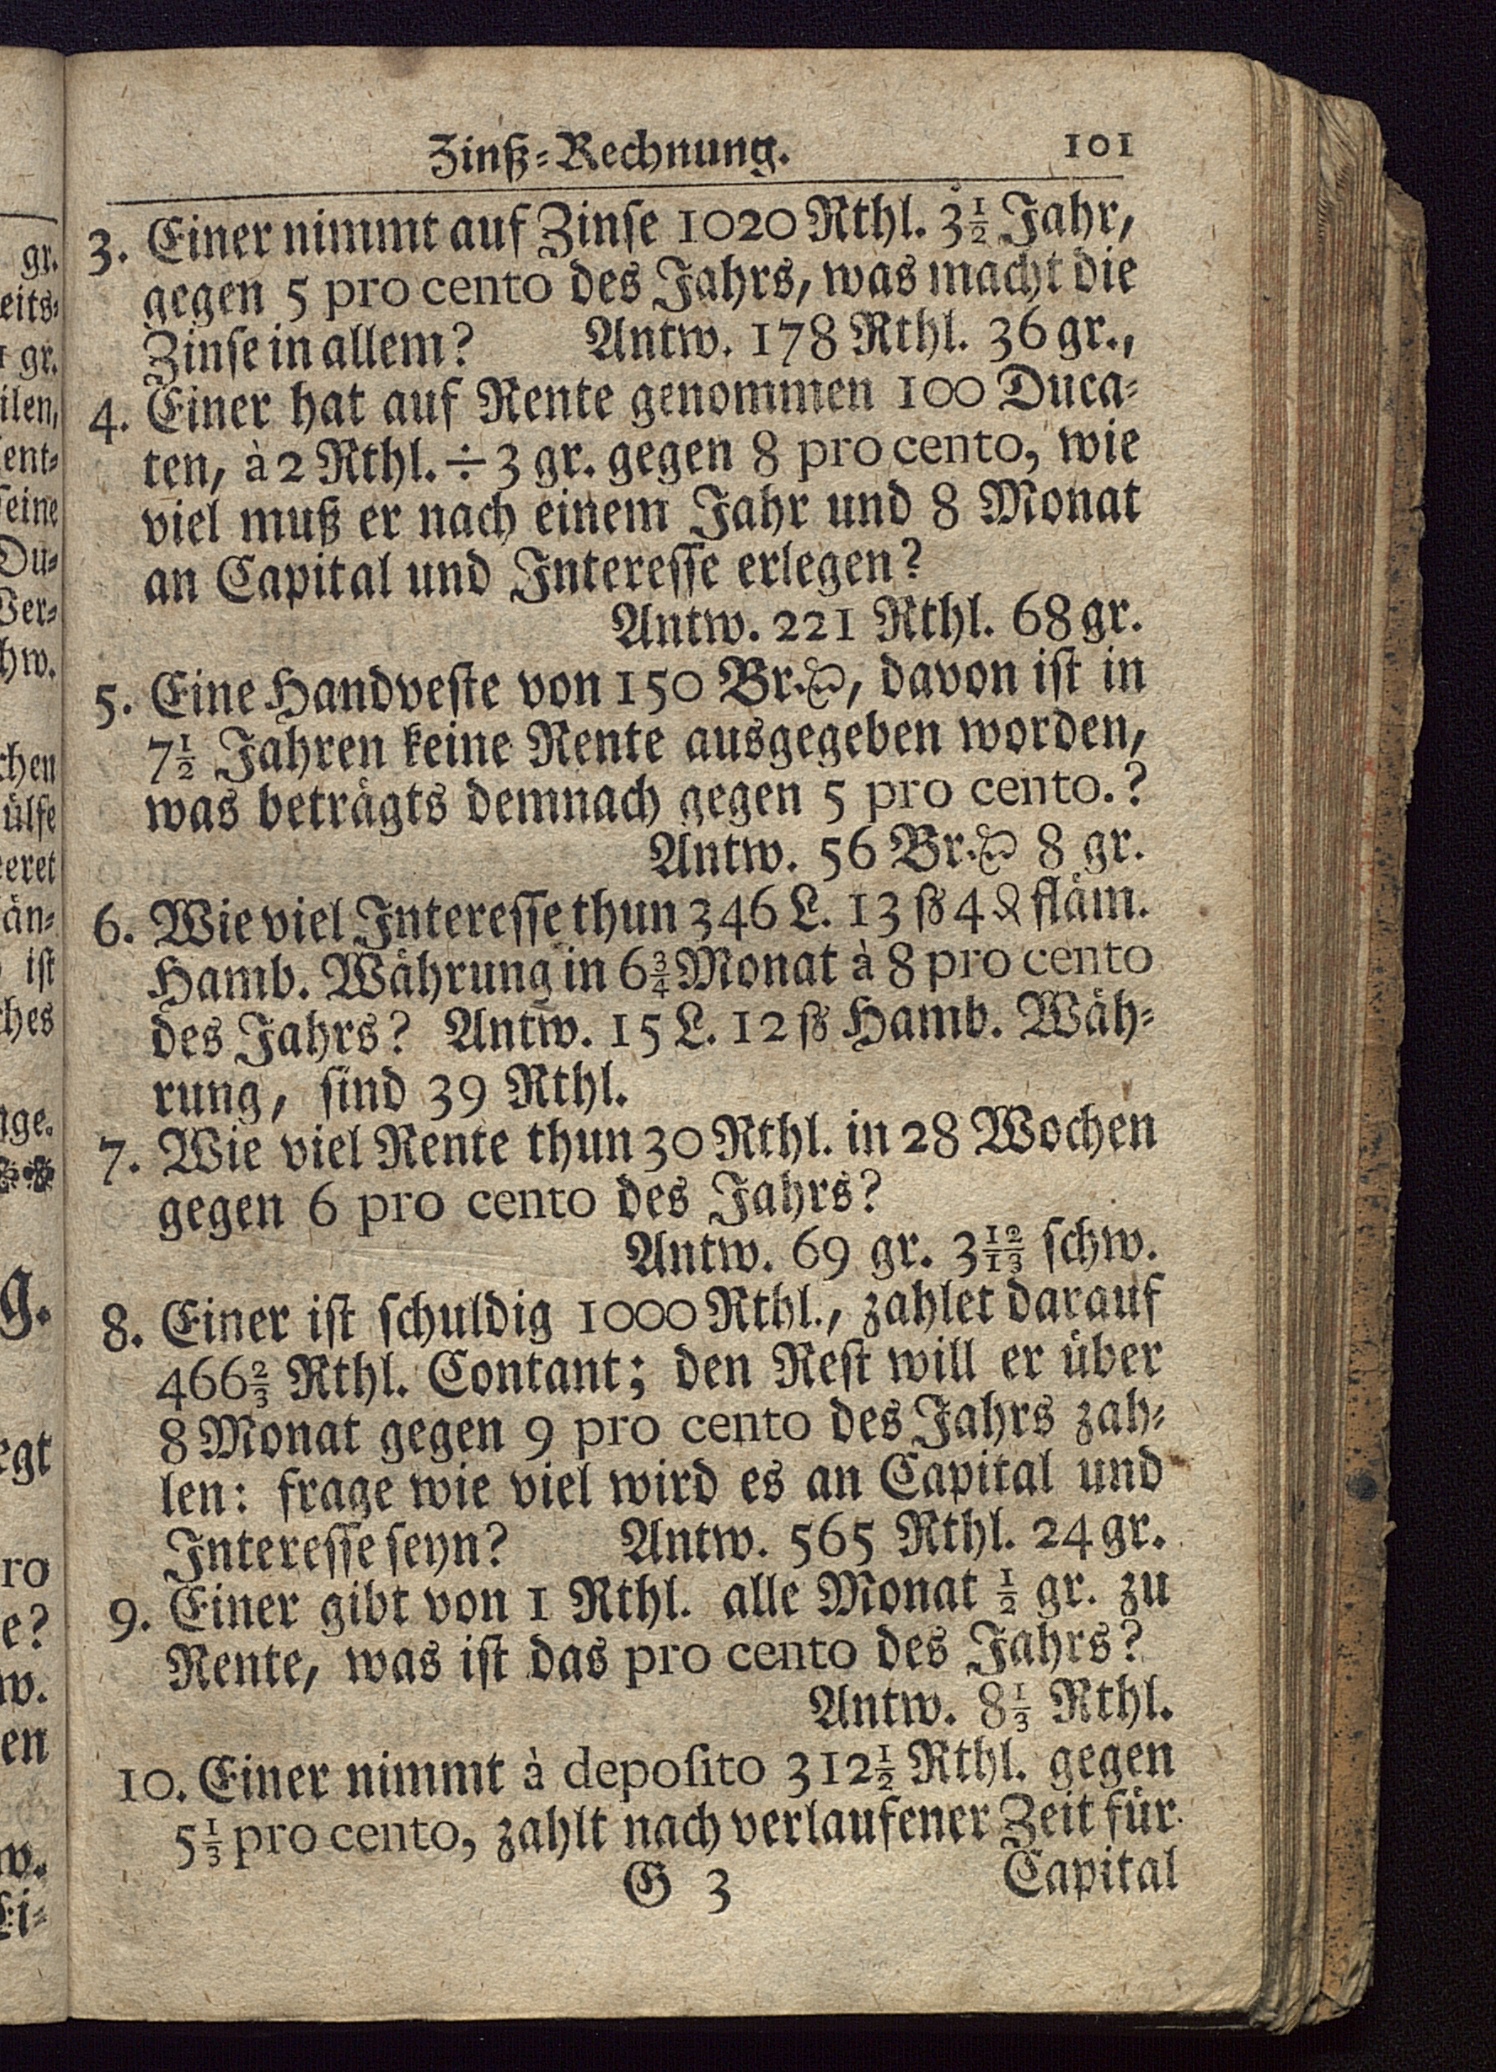 Zinß-Rechnung. 101
3. Einer nimmt auf Zinse 1020 Rthl. 3½ Jahr,
gegen 5 pro cento des Jahrs, was macht die
Zinse in allem? Antw. 178 Rthl. 36 gr.,
4. Einer hat auf Rente genommen 100 Duca-
ten, à 2 Rthl. ÷ 3 gr. gegen 8 pro cento, wie
viel muß er nach einem Jahr und 8 Monat
an Capital und Interesse erlegen?
Antw. 221 Rthl. 68 gr.
5. Eine Handveste von 150 Br. , davon ist in
7½ Jahren keine Rente ausgegeben worden,
was beträgts demnach gegen 5 pro cento.?
Antw. 56 Br. 8 gr.
6. Wie viel Interesse thun 346 L. 13 ß 4 ₰ fläm.
Hamb. Währung in 6¾ Monat à 8 pro cento
des Jahrs? Antw. 15 L. 12 ß Hamb. Wäh-
rung, sind 39 Rthl.
7. Wie viel Rente thun 30 Rthl. in 28 Wochen
gegen 6 pro cento des Jahrs?
Antw. 69 gr. 3 12/13 schw.
8. Einer ist schuldig 1000 Rthl., zahlet darauf
466⅔ Rthl. Contant; den Rest will er über
8 Monat gegen 9 pro cento des Jahrs zah-
len: frage wie viel wird es an Capital und
Interesse seyn? Antw. 565 Rthl. 24 gr.
9. Einer gibt von 1 Rthl. alle Monat ½ gr. zu
Rente, was ist das pro cento des Jahrs?
Antw. 8⅓ Rthl.
10. Einer nimmt à deposito 312½ Rthl. gegen
5⅓ pro cento, zahlt nach verlaufener Zeit für
G 3 Capital